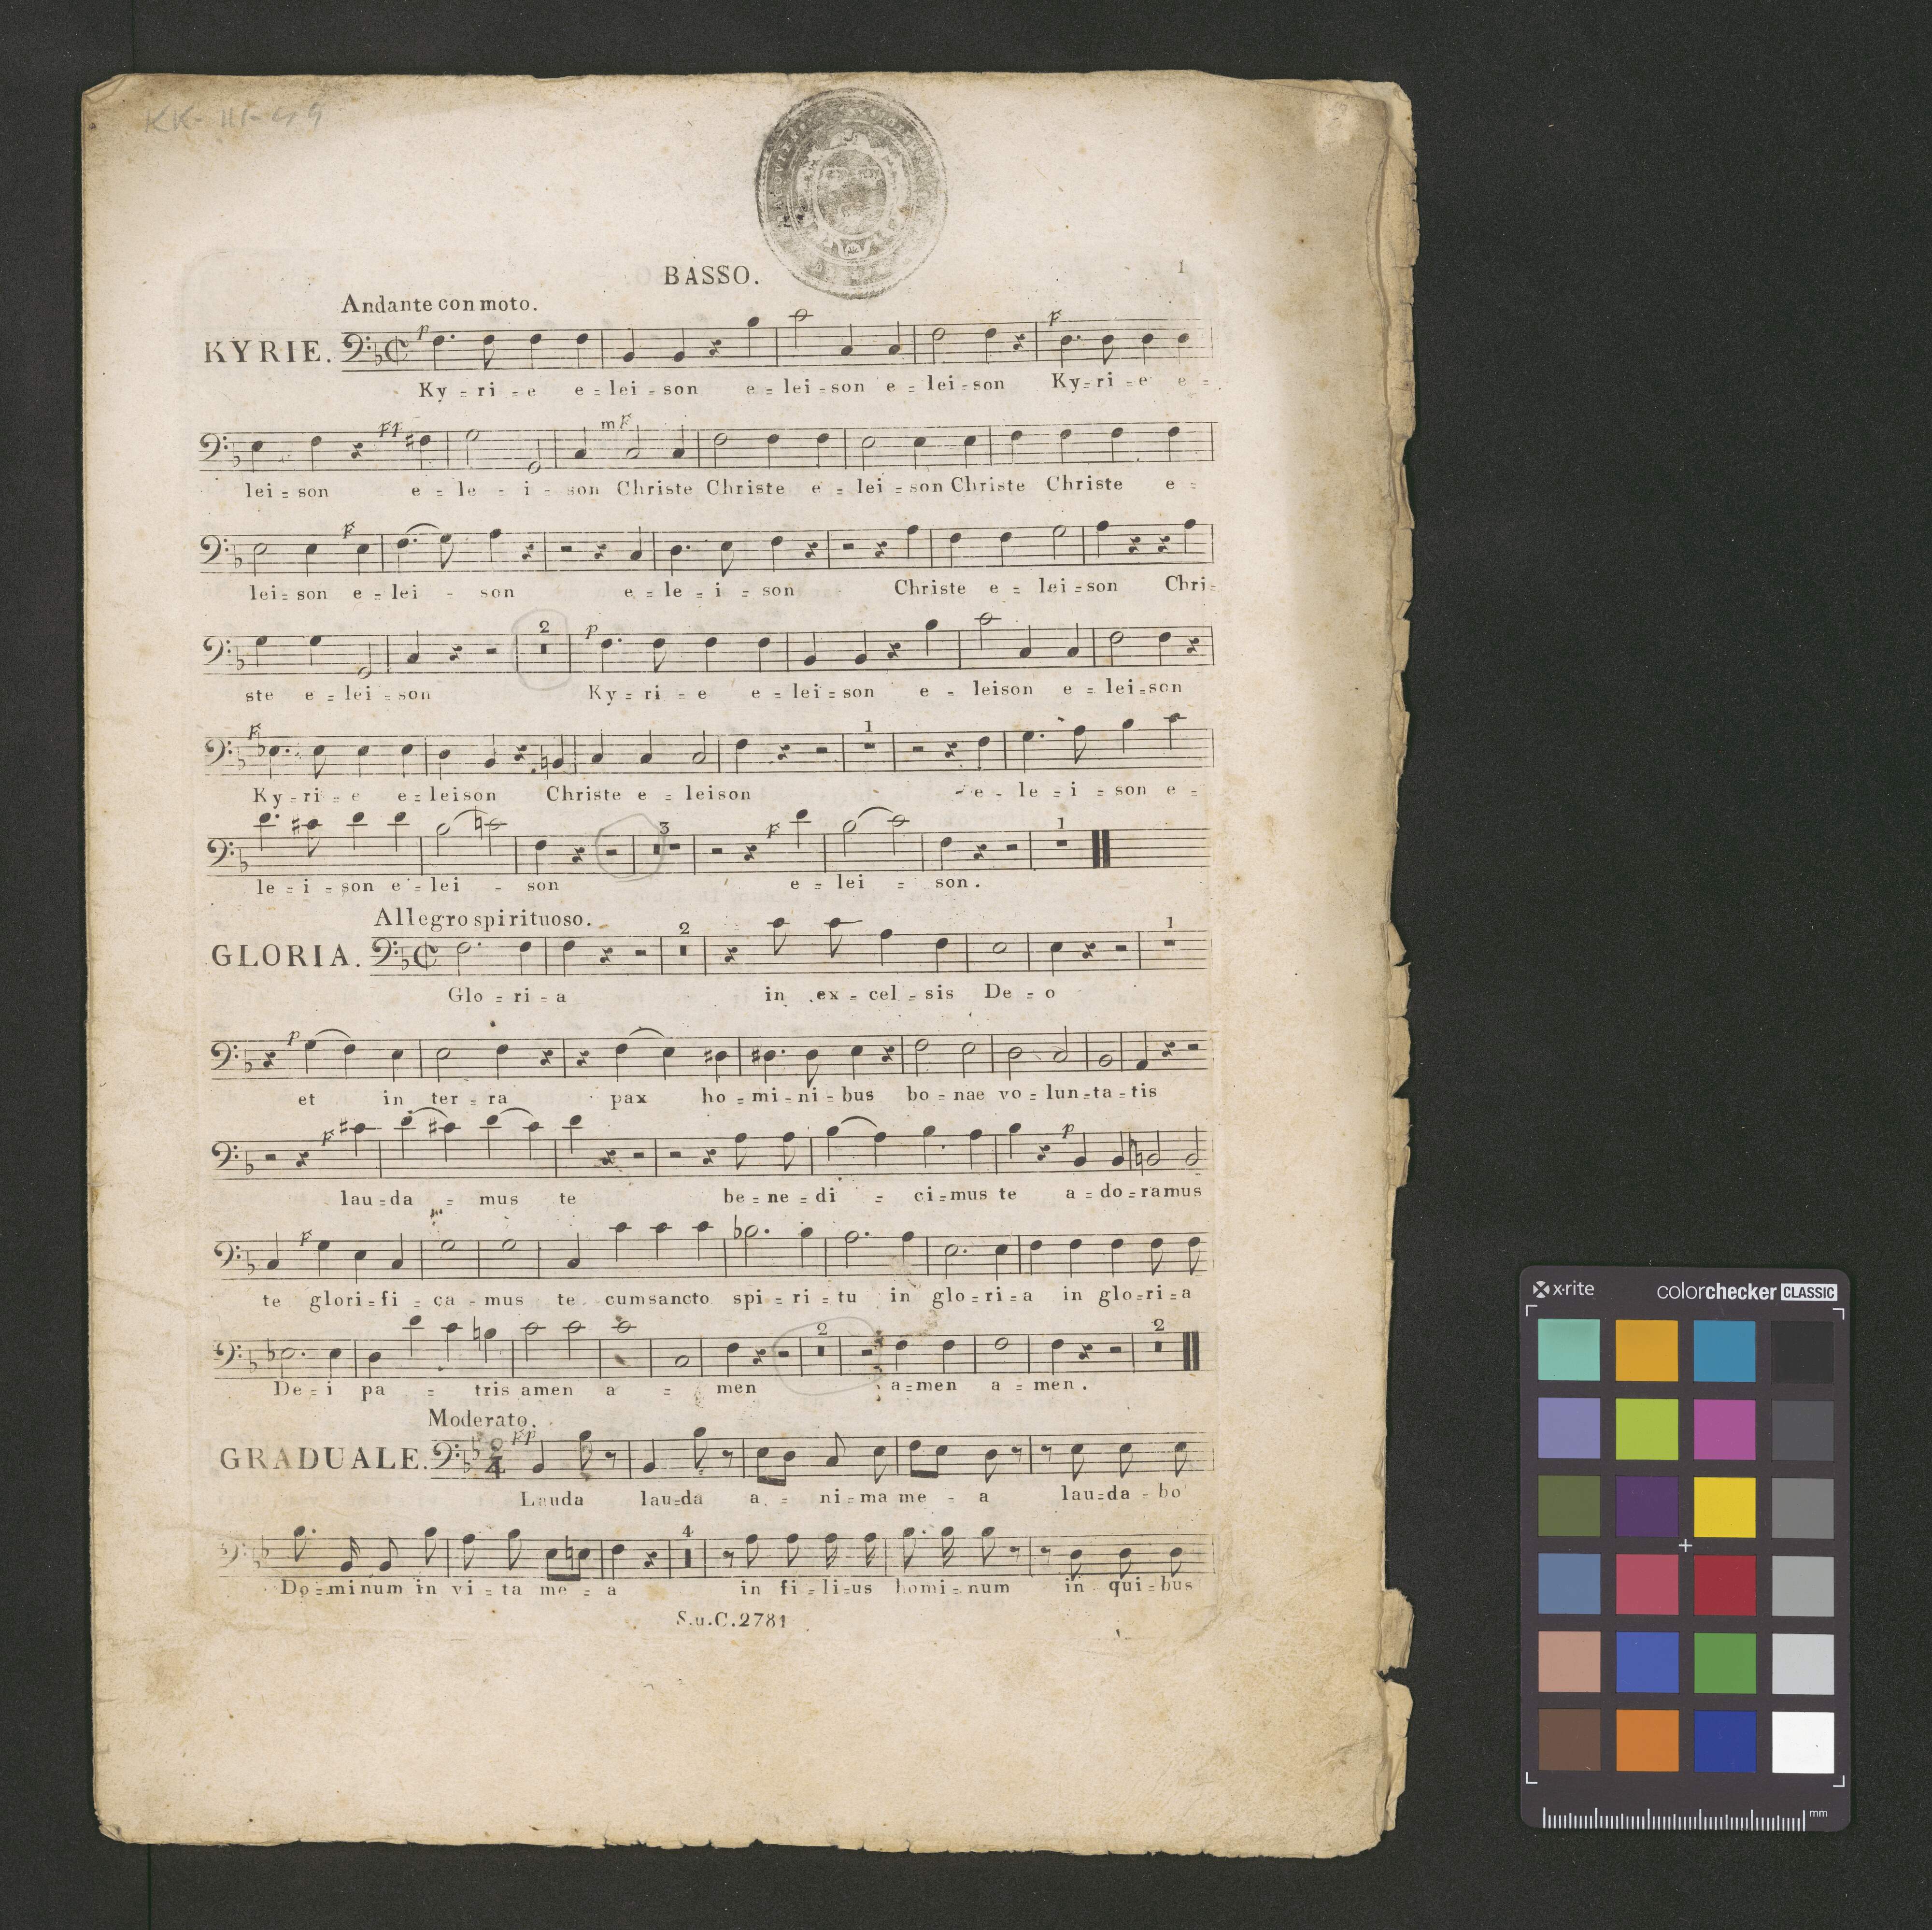 KK-III-49
BASSO.
1
Andante con moto.
KYRIE.
p
F
Ky = ri = e e = lei = son e = lei = son e = lei = son Ky = ri = e e =
Fp
mF
lei = son e = le = i = son Christe Christe e = lei = son Christe Christe e =
F
lei = son e = lei - son e = le = i = son Christe e = lei = son Chri =
2
p
ste e = lei = son Ky = ri = e e = lei = son e - leison e = lei = son
F
1
Ky = ri = e e = leison Christe e = leison e = le = i = son e =
3
F
1
le = i = son e = lei - son e = lei = son.
Allegro spirituoso.
GLORIA.
2
1
Glo = ri = a in ex = cel = sis De = o
p
et in ter = ra pax ho = mi = ni = bus bo = nae vo = lun = ta = tis
F
p
lau = da = mus te be = ne = di = ci = mus te a = do = ramus
F
te glori = fi = ca = mus te cum sancto spi = ri = tu in glo = ri = a in glo = ri = a
2
2
De = i pa = tris amen a = men a = men a = men.
Moderato.
GRADUALE.
2
4
Fp
Lauda lau = da a = ni = ma me = a lau = da = bo
4
Do = minum in vi = ta me = a in fi = li = us homi = num in qui = bus
S.u.C.2781
x·rite
colorchecker CLASSIC
mm